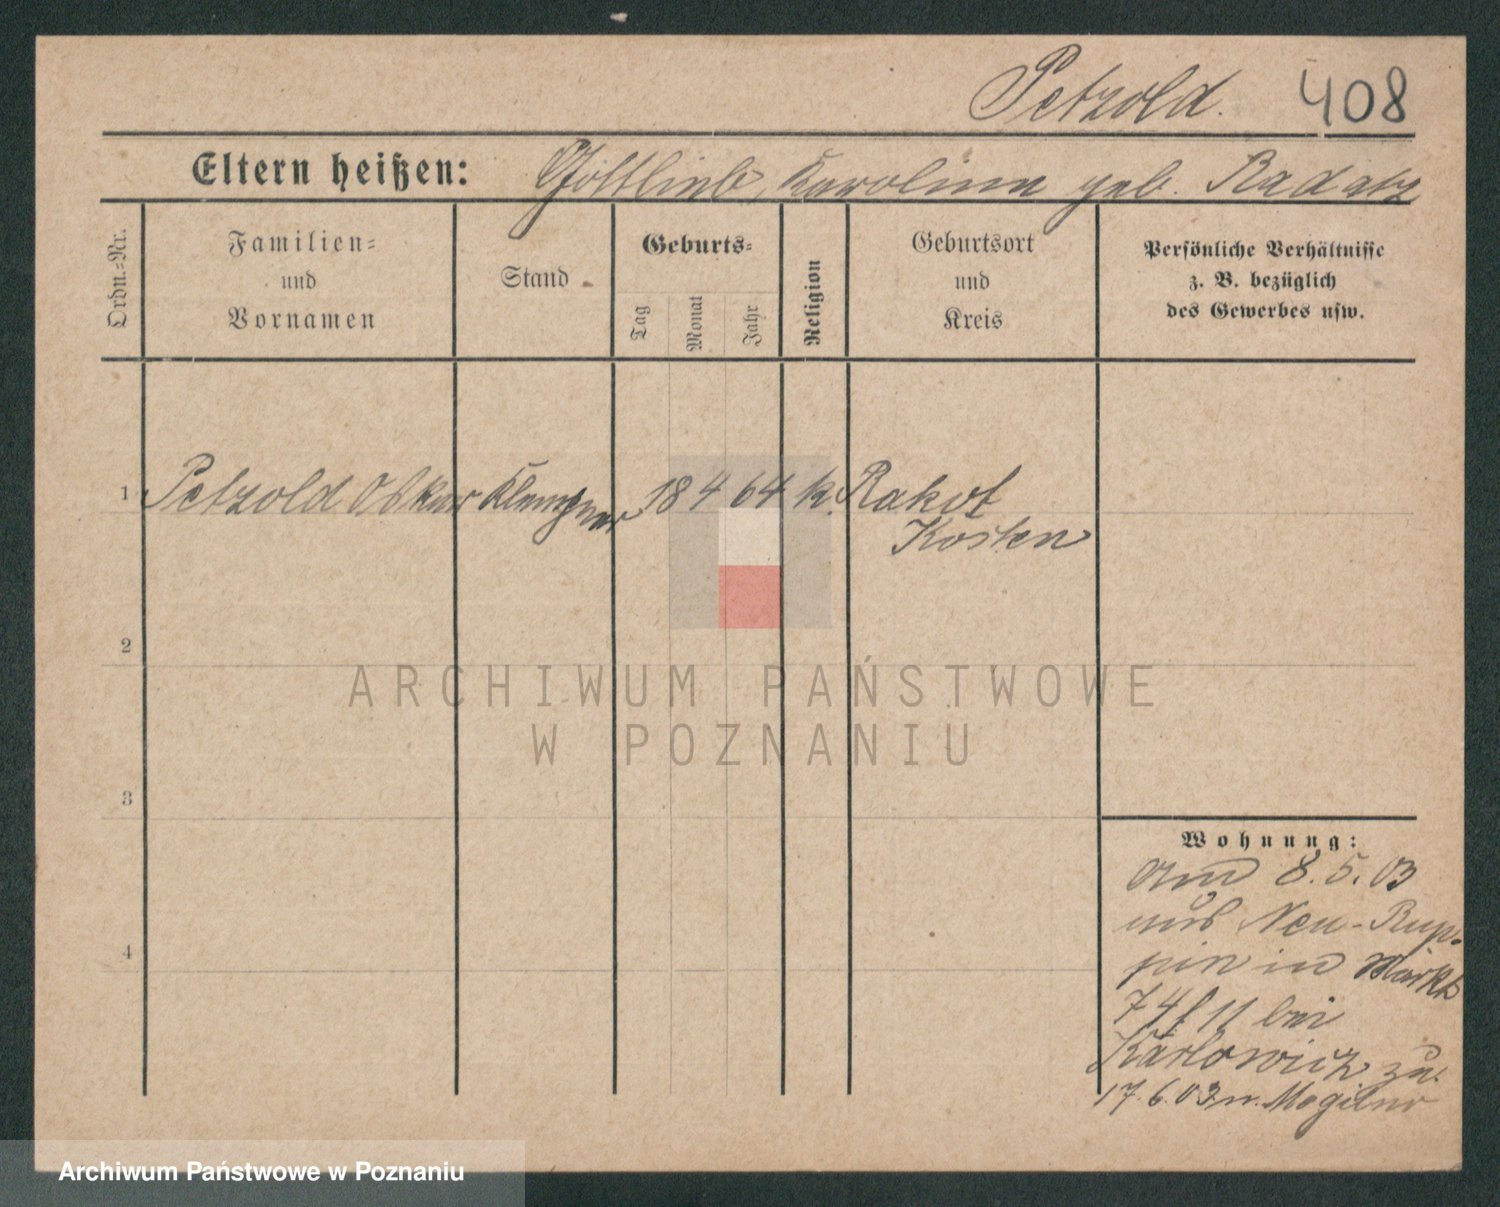 Petzold. 408
Eltern heißen: Gottlieb, Karolina geb. Radatz
Ordn.=Nr.
Familien=
und
Vornamen
Stand
Geburts=
Tag
Monat
Jahr
Religion
Geburtsort
und
Kreis
Persönliche Verhältnisse
z. B. bezüglich
des Gewerbes usw.
1 Petzold Oskar Klempner 18 4 64 k. Rakot
Kosten
2
3
4
Wohnung:
am 8. 5. 03
aus Neu-Rup-
pin in Markt
74/11 bei
Karlowicz zu.
17. 6. 03 n. Mogilno
ARCHIWUM PAŃSTWOWE
W POZNANIU
Archiwum Państwowe w Poznaniu